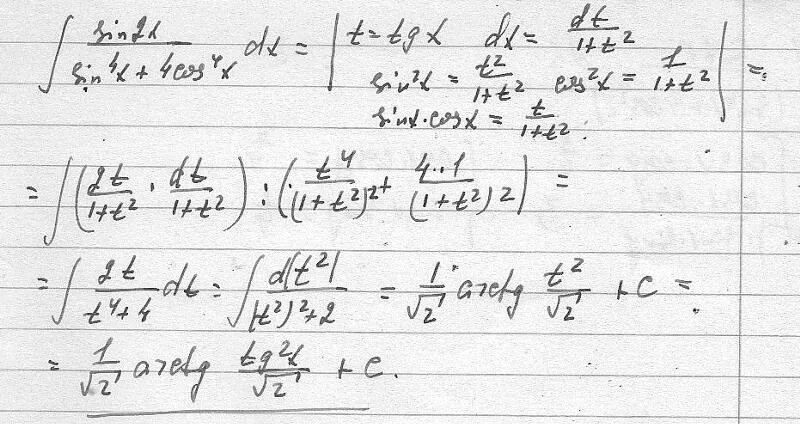 ∫ sin2x / (sin⁴x + 4cos⁴x) dx = | t = tg x   dx = dt / (1+t²)
sin²x = t² / (1+t²)   cos²x = 1 / (1+t²) | =
sinx · cosx = t / (1+t²)
= ∫ (2t / (1+t²) · dt / (1+t²)) : (t⁴ / (1+t²)² + 4·1 / (1+t²)²) =
= ∫ 2t / (t⁴+4) dt = ∫ d(t²) / ((t²)²+2) = 1/√2 arctg t²/√2 + C =
= 1/√2 arctg tg²x/√2 + C.